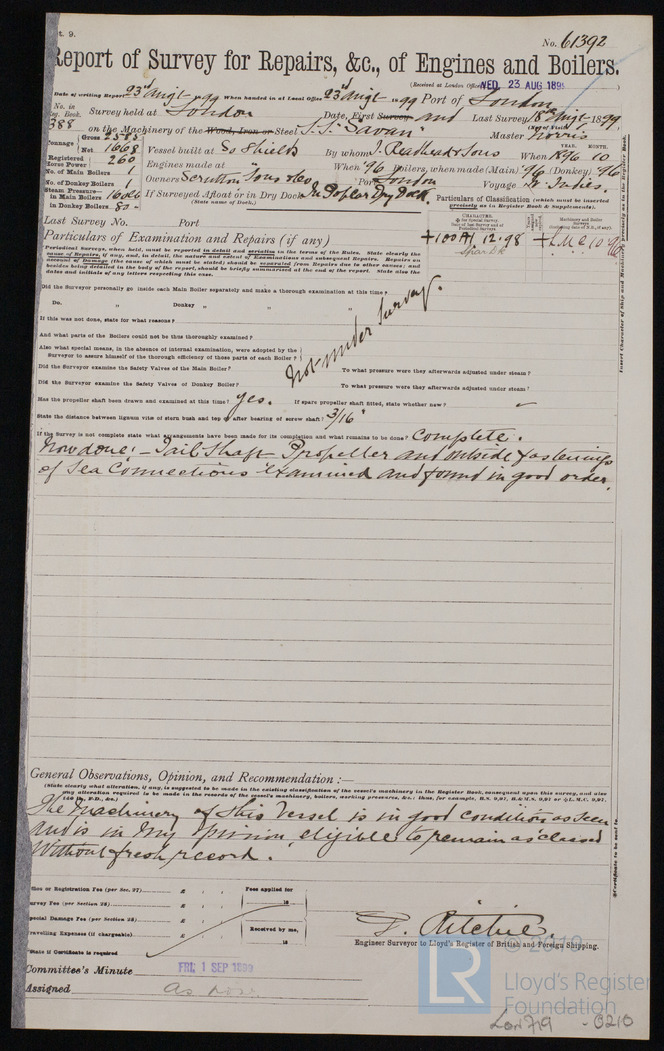 t. 9.
No. 61392
Report of Survey for Repairs, &c., of Engines and Boilers.
(Received at London Office WED. 23 AUG 189
Date of writing Report 23rd Augt 1899 When handed in at Local Office 23rd Augt 1899 Port of London
No. in Reg. Book. Survey held at London Date, First Survey and Last Survey 18th Augt 1899
388 on the Machinery of the Wood, Iron or Steel S.S. "Savan" Master Norris
Tonnage Gross 2583 Net 1668 Vessel built at So Shields By whom J. Readhead & Sons When 1896 10
YEAR. MONTH.
Registered Horse Power 260 Engines made at " When '96 Boilers, when made (Main) 96 (Donkey) 96
No. of Main Boilers 1 Owners Scrutton Sons & Co Port London Voyage W. Indies.
No. of Donkey Boilers 1
Steam Pressure in Main Boilers 160 lbs If Surveyed Afloat or in Dry Dock In Poplar Dry Dock.
in Donkey Boilers 80 - (State name of Dock.)
Particulars of Classification (which must be inserted precisely as in Register Book & Supplements).
Last Survey No. Port
CHARACTER.
Machinery and Boiler Surveys
+100A1 12.98 + L.M.C. 10.96
Spar Dk
Particulars of Examination and Repairs (if any)
Periodical Surveys, when held, must be reported in detail and seriatim in the terms of the Rules. State clearly the cause of Repairs, if any, and, in detail, the nature and extent of Examinations and subsequent Repairs. Repairs on account of Damage (the cause of which must be stated) should be separated from Repairs due to other causes; and besides being detailed in the body of the report, should be briefly summarized at the end of the report. State also the dates and initials of any letters respecting this case.
Insert Character of Ship and Machinery precisely as in the Register Book.
Did the Surveyor personally go inside each Main Boiler separately and make a thorough examination at this time?
Do. " Donkey " " "
If this was not done, state for what reasons?
And what parts of the Boilers could not be thus thoroughly examined?
Also what special means, in the absence of internal examination, were adopted by the Surveyor to assure himself of the thorough efficiency of those parts of each Boiler?
Not under Survey.
Did the Surveyor examine the Safety Valves of the Main Boiler? To what pressure were they afterwards adjusted under steam?
Did the Surveyor examine the Safety Valves of Donkey Boiler? To what pressure were they afterwards adjusted under steam?
Has the propeller shaft been drawn and examined at this time? yes. If spare propeller shaft fitted, state whether new?
State the distance between lignum vitæ of stern bush and top of after bearing of screw shaft? 3/16"
If the Survey is not complete state what arrangements have been made for its completion and what remains to be done? Complete.
Now done: - Tail Shaft Propeller and outside fastenings
of Sea Connections examined and found in good order.
General Observations, Opinion, and Recommendation :—
(State clearly what alteration, if any, is suggested to be made in the existing classification of the vessel's machinery in the Register Book, consequent upon this survey, and also any alteration required to be made in the records of the vessel's machinery, boilers, working pressures, &c.: thus, for example,
The Machinery of this Vessel is in good condition as seen
and is in my opinion, eligible to remain as classed
Without fresh record.
Certificate to be sent to
Office or Registration Fee (per Sec. 27) £ Fees applied for
Survey Fee (per Section 28) £ 18
Special Damage Fee (per Section 28) £ Received by me,
Travelling Expenses (if chargeable) £ 18
State if Certificate is required
D. Ritchie.
Engineer Surveyor to Lloyd's Register of British and Foreign Shipping.
Committee's Minute FRI, 1 SEP 1899
Assigned as now
© 2019
LR Lloyd's Register Foundation
Lon 719 - 0210